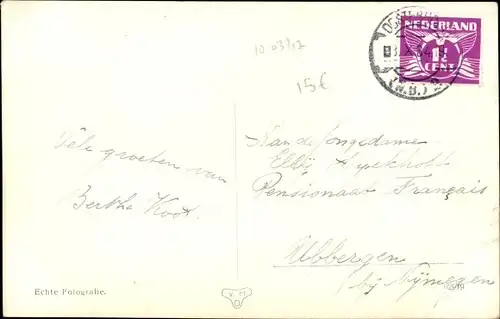 10 03917
15€
OOSTERHOUT
(N.B.) 2
NEDERLAND
1½
CENT
Vele groeten van
Bertha Koot.
Aan de Jongedame
Elly
Pensionaat Français
Ubbergen
bij Nijmegen
Echte Fotografie.
V H